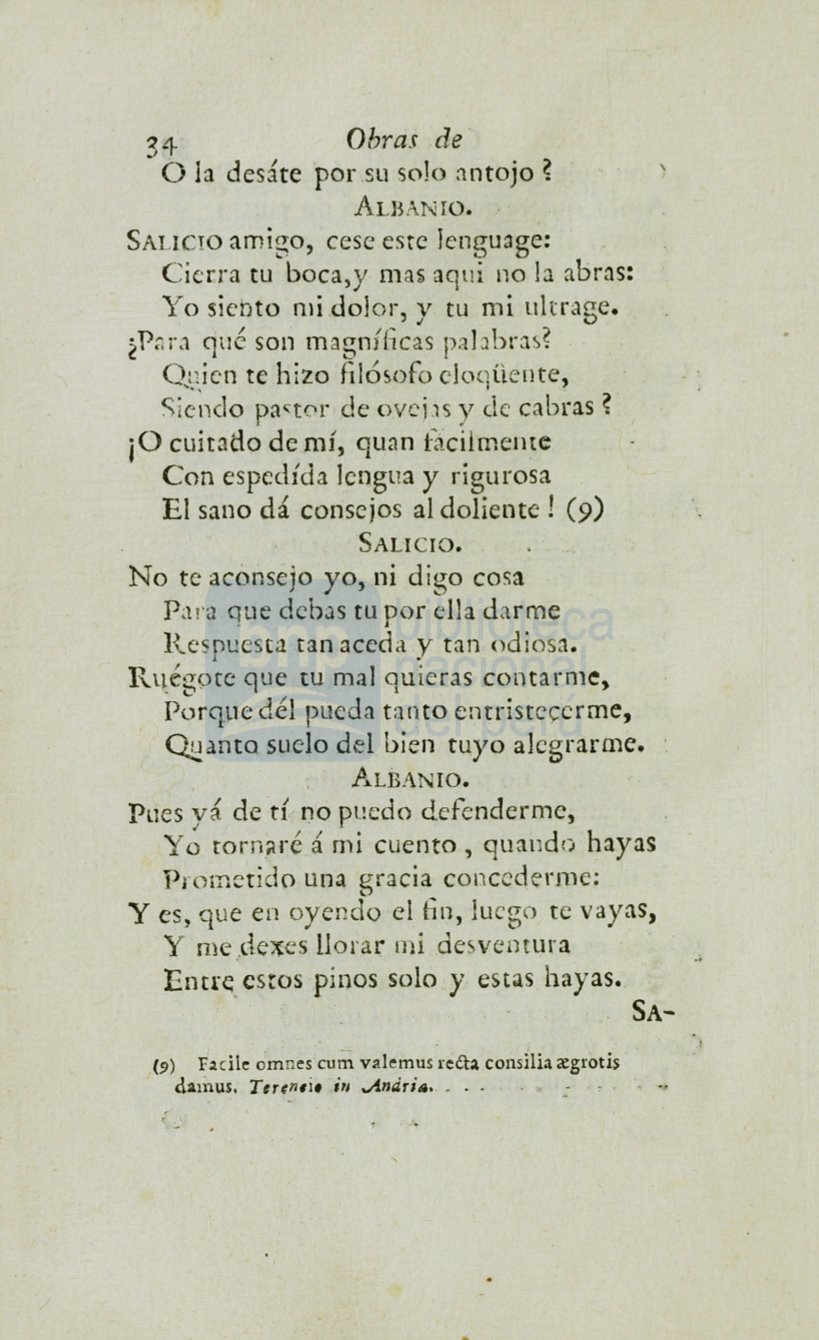 34 Obras de
O la desáte por su solo antojo ?
ALBANIO.
SALICIO amigo, cese este lenguage:
Cierra tu boca, y mas aqui no la abras:
Yo siento mi dolor, y tu mi ultrage.
¿Para qué son magníficas palabras?
Quien te hizo filósofo eloqüente,
Siendo pastor de ovejas y de cabras ?
¡O cuitado de mí, quan facilmente
Con espedída lengua y rigurosa
El sano dá consejos al doliente ! (9)
SALICIO.
No te aconsejo yo, ni digo cosa
Para que debas tu por ella darme
Respuesta tan aceda y tan odiosa.
Ruégote que tu mal quieras contarme,
Porque dél pueda tanto entristecerme,
Quanto suelo del bien tuyo alegrarme.
ALBANIO.
Pues yá de tí no puedo defenderme,
Yo tornaré á mi cuento , quando hayas
Prometido una gracia concederme:
Y es, que en oyendo el fin, luego te vayas,
Y me dexes llorar mi desventura
Entre estos pinos solo y estas hayas.
SA-
(9) Facile omnes cum valemus recta consilia ægrotis
damus. Terencio in Andria.
bnp biblioteca
nacional
del perú